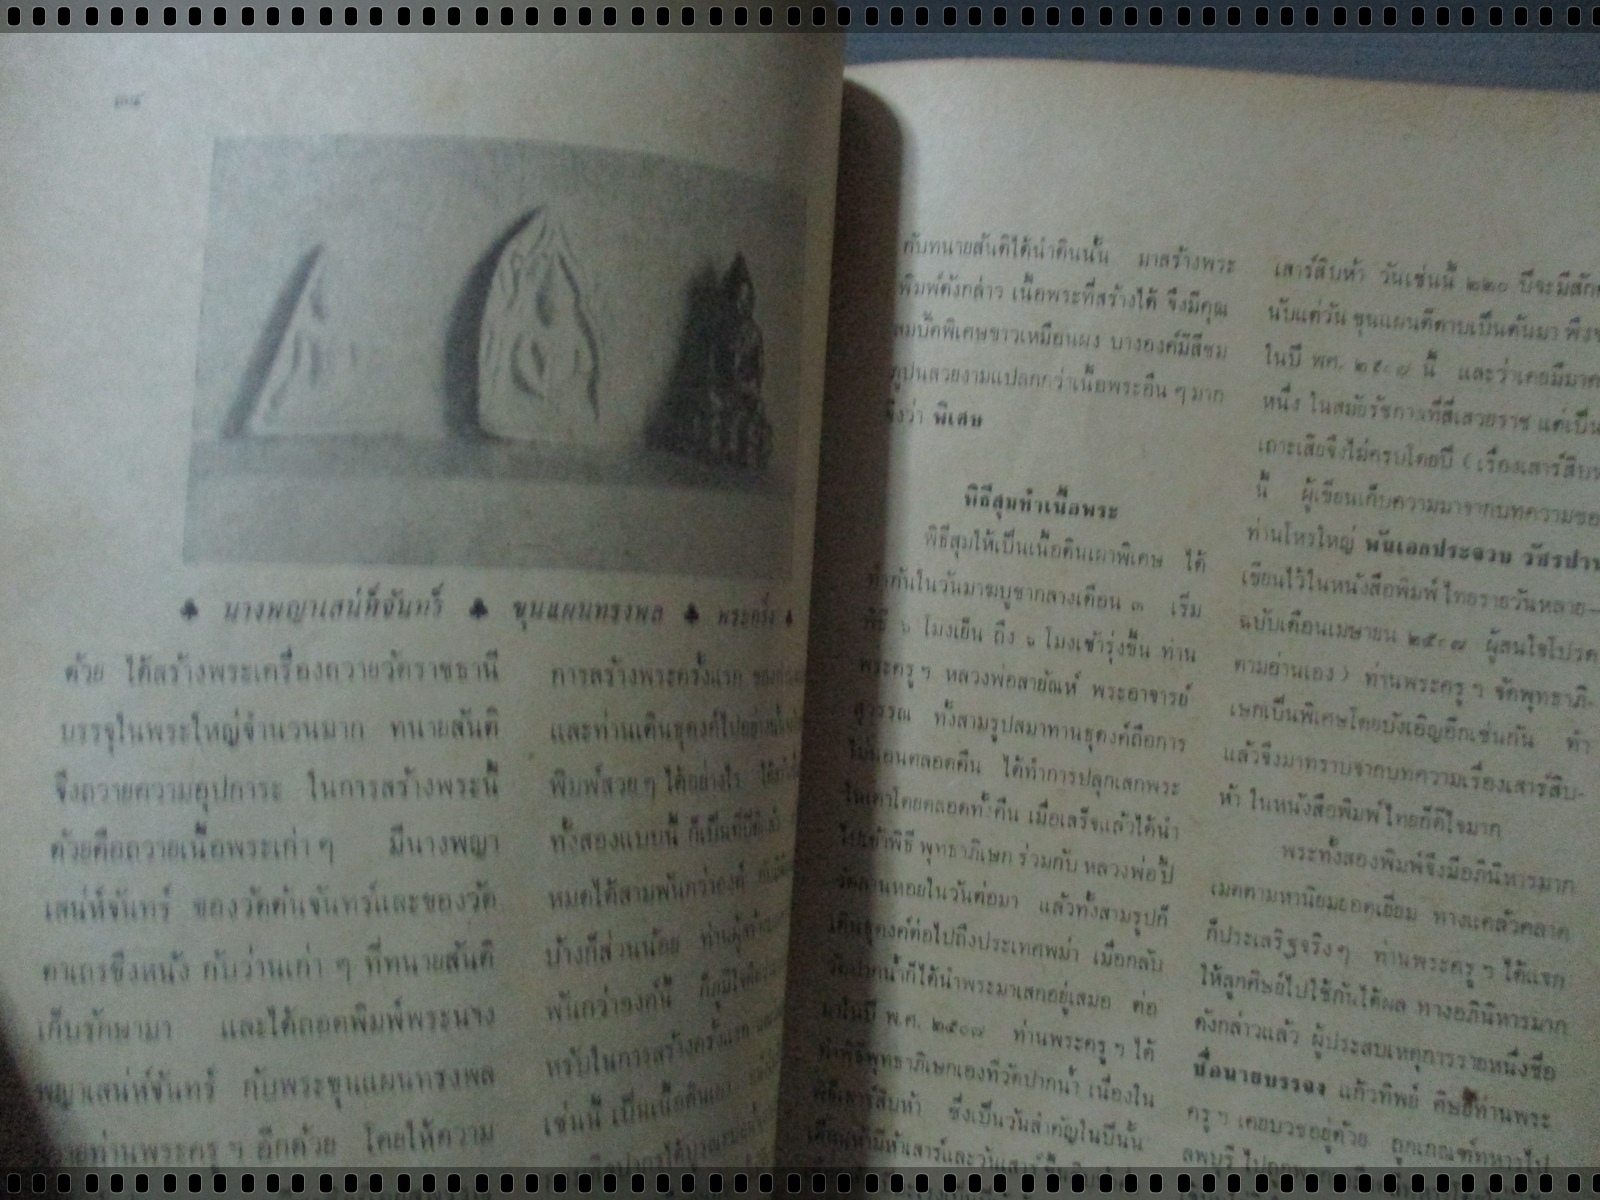 ๓๘
♣ นางพญาเสน่ห์จันทร์ ♣ ขุนแผนทรงพล ♣ พระกริ่ง ♣
ด้วย ได้สร้างพระเครื่องถวายวัดราชธานี
บรรจุในพระใหญ่จำนวนมาก ทนายสันติ
จึงถวายความอุปการะ ในการสร้างพระนี้
ด้วยคือถวายเนื้อพระเก่าๆ มีนางพญา
เสน่ห์จันทร์ ของวัดต้นจันทร์และของวัด
ตาเถรขึงหนัง กับว่านเก่า ๆ ที่ทนายสันติ
เก็บรักษามา และได้ถอดพิมพ์พระนาง
พญาเสน่ห์จันทร์ กับพระขุนแผนทรงพล
ถวายท่านพระครู ฯ อีกด้วย โดยให้ความ
การสร้างพระครั้งแรก
และท่านเดินธุดงค์ไป
พิมพ์สวย ๆ ได้อย่างไร
ทั้งสองแบบนี้ ก็เป็นที่
หมดได้สามพันกว่าองค์
บ้างก็ส่วนน้อย
พันกว่าองค์นี้ ก็ภูมิใจ
หรับในการสร้างครั้งแรก
เช่นนี้ เป็นเนื้อดินเผา
กับทนายสันติได้นำดินนั้น มาสร้างพระ
พิมพ์ดังกล่าว เนื้อพระที่สร้างได้ จึงมีคุณ
สมบัติพิเศษขาวเหมือนผง บางองค์มีสีชม
ภูปนสวยงามแปลกกว่าเนื้อพระอื่น ๆ มาก
จึงว่า พิเศษ
พิธีสุมทำเนื้อพระ
พิธีสุมให้เป็นเนื้อดินเผาพิเศษ ได้
ทำกันในวันมาฆบูชากลางเดือน ๓ เริ่ม
พิธี ๖ โมงเย็น ถึง ๖ โมงเช้ารุ่งขึ้น ท่าน
พระครู ฯ หลวงพ่อสายัณห์ พระอาจารย์
สุวรรณ ทั้งสามรูปสมาทานธุดงค์ถือการ
ไม่นอนตลอดคืน ได้ทำการปลุกเสกพระ
ในเตาโดยตลอดทั้งคืน เมื่อเสร็จแล้วได้นำ
ไปเข้าพิธี พุทธาภิเษก ร่วมกับ หลวงพ่อปี้
วัดลานหอยในวันต่อมา แล้วทั้งสามรูปก็
เดินธุดงค์ต่อไปถึงประเทศพม่า เมื่อกลับ
วัดปากน้ำก็ได้นำพระมาเสกอยู่เสมอ ต่อ
มาในปี พ.ศ. ๒๕๑๗ ท่านพระครู ฯ ได้
ทำพิธีพุทธาภิเษกเองที่วัดปากน้ำ เนื่องใน
พิธีเสาร์สิบห้า ซึ่งเป็นวันสำคัญในปีนั้น
เดือนห้ามีห้าเสาร์และวันเสาร์
เสาร์สิบห้า วันเช่นนี้ ๒๒๐ ปีจะมีสัก
นับแต่วัน ขุนแผนตีดาบเป็นต้นมา พึ่ง
ในปี พศ. ๒๕๑๗ นี้ และว่าเคยมีมา
หนึ่ง ในสมัยรัชกาลที่สี่เสวยราช แต่เป็น
เถาะเสียจึงไม่ครบโดยปี ( เรื่องเสาร์สิบห้า
นี้ ผู้เขียนเก็บความมาจากบทความของ
ท่านโหรใหญ่ พันเอกประจวบ วัชรปาน
เขียนไว้ในหนังสือพิมพ์ ไทยรายวันหลาย—
ฉบับเดือนเมษายน ๒๕๑๗ ผู้สนใจโปรด
ตามอ่านเอง ) ท่านพระครู ฯ จัดพุทธาภิ-
เษกเป็นพิเศษโดยบังเอิญอีกเช่นกัน ทำ
แล้วจึงมาทราบจากบทความเรื่องเสาร์สิบ-
ห้า ในหนังสือพิมพ์ไทยก็ดีใจมาก
พระทั้งสองพิมพ์จึงมีอภินิหารมาก
เมตตามหานิยมยอดเยี่ยม ทางแคล้วคลาด
ก็ประเสริฐจริงๆ ท่านพระครู ฯ ได้แจก
ให้ลูกศิษย์ไปใช้กันได้ผล ทางอภินิหารมาก
ดังกล่าวแล้ว ผู้ประสบเหตุการรายหนึ่งชื่อ
ชื่อนายบรรจง แก้วทิพย์ ศิษย์ท่านพระ
ครู ฯ เคยบวชอยู่ด้วย ถูกเกณฑ์ทหารไป
ลพบุรี